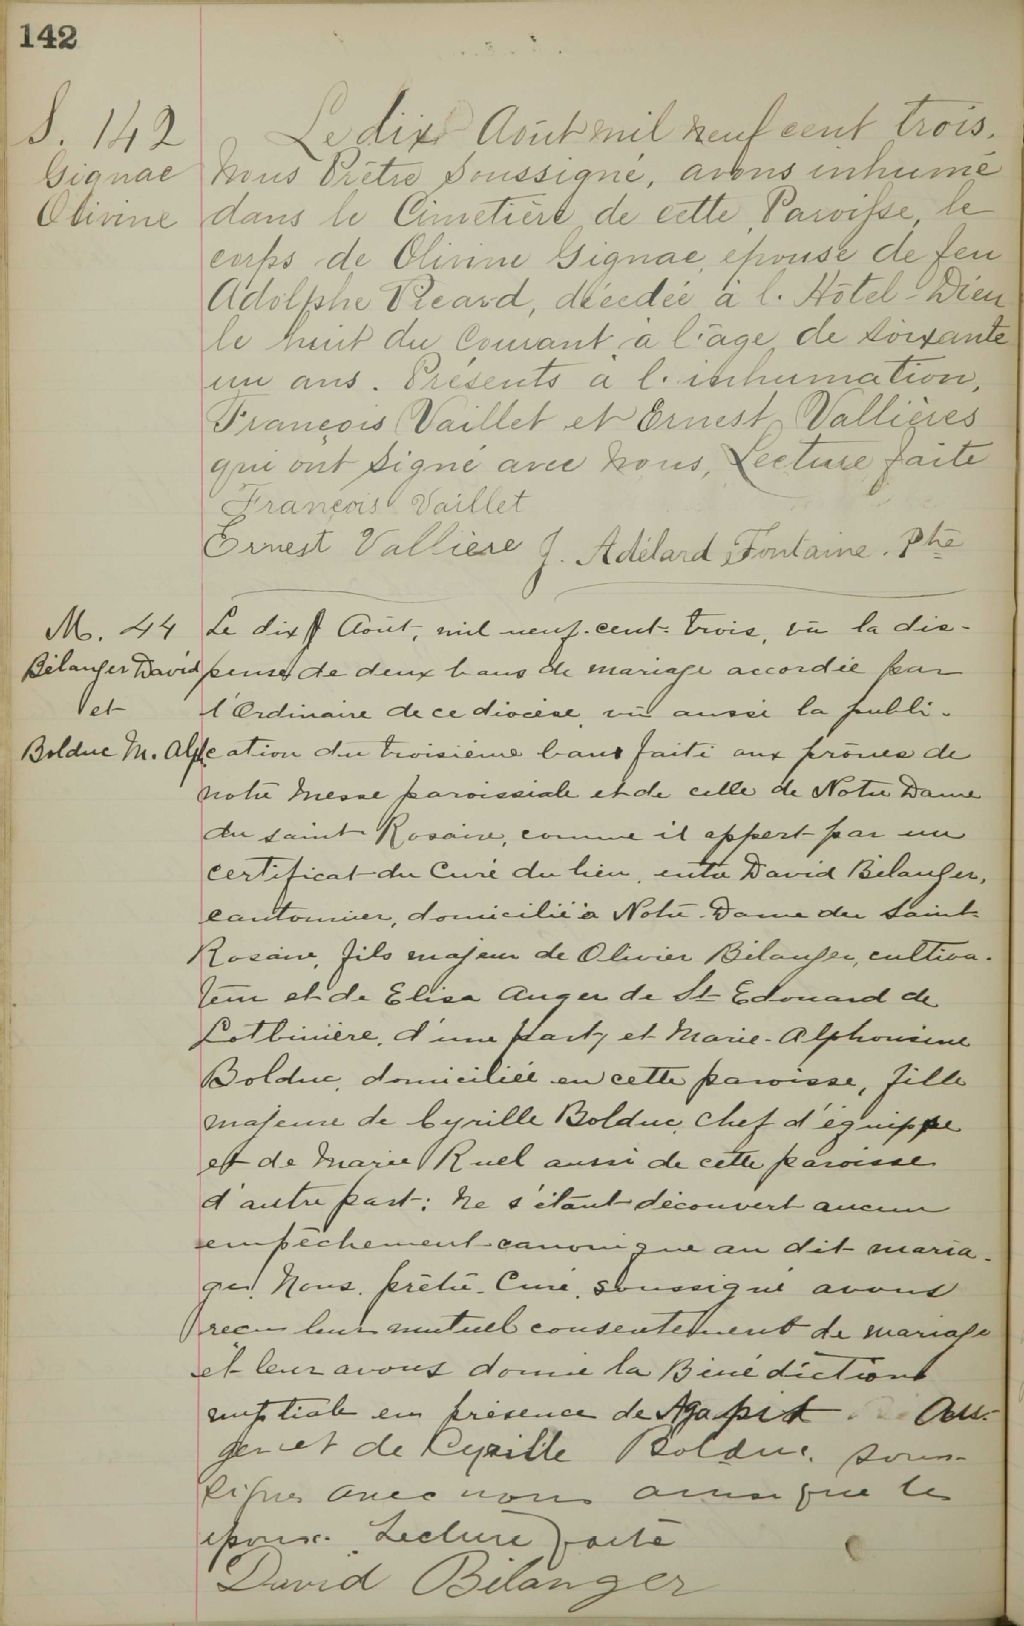 142
S. 142
Gignac
Olivine
Le dix Août mil neuf cent trois.
Nous Prêtre Soussigné, avons inhumé
dans le Cimetière de cette Paroisse, le
corps de Olivine Gignac, épouse de feu
Adolphe Picard, décédée à l. Hôtel-Dieu
le huit du Courant à l'âge de soixante
un ans. Présents à l. inhumation,
François Vaillet et Ernest Vallières
qui ont signé avec nous, Lecture faite
François Vaillet
Ernest Vallière J. Adélard Fontaine. Ptre
M. 44
Bélanger David
et
Bolduc M. Alph.
Le dix Août, mil neuf-cent-trois, vû la dis-
pense de deux bans de mariage accordée par
l'Ordinaire de ce diocèse, vû aussi la publi-
cation du troisième ban faite aux prônes de
notre Messe paroissiale et de celle de Notre Dame
du saint Rosaire, comme il appert par un
certificat du Curé du lieu, entre David Bélanger,
cantonnier, domicilié à Notre-Dame du Saint
Rosaire, fils majeur de Olivier Bélanger, cultiva-
teur et de Elisa Auger de St Edouard de
Lotbinière, d'une part, et Marie-Alphonsine
Bolduc, domiciliée en cette paroisse, fille
majeure de Cyrille Bolduc, chef d'équippe
et de Marie Ruel aussi de cette paroisse
d'autre part; Ne s'étant découvert aucun
empêchement canonique au dit maria-
ge, Nous, prêtre-Curé, soussigné avons
reçu leur mutuel consentement de mariage
et leur avons donné la Bénédiction
nuptiale en présence de Agapit Au-
ger et de Cyrille Bolduc, sous-
signés avec nous ainsi que les
époux. Lecture faite
David Bélanger